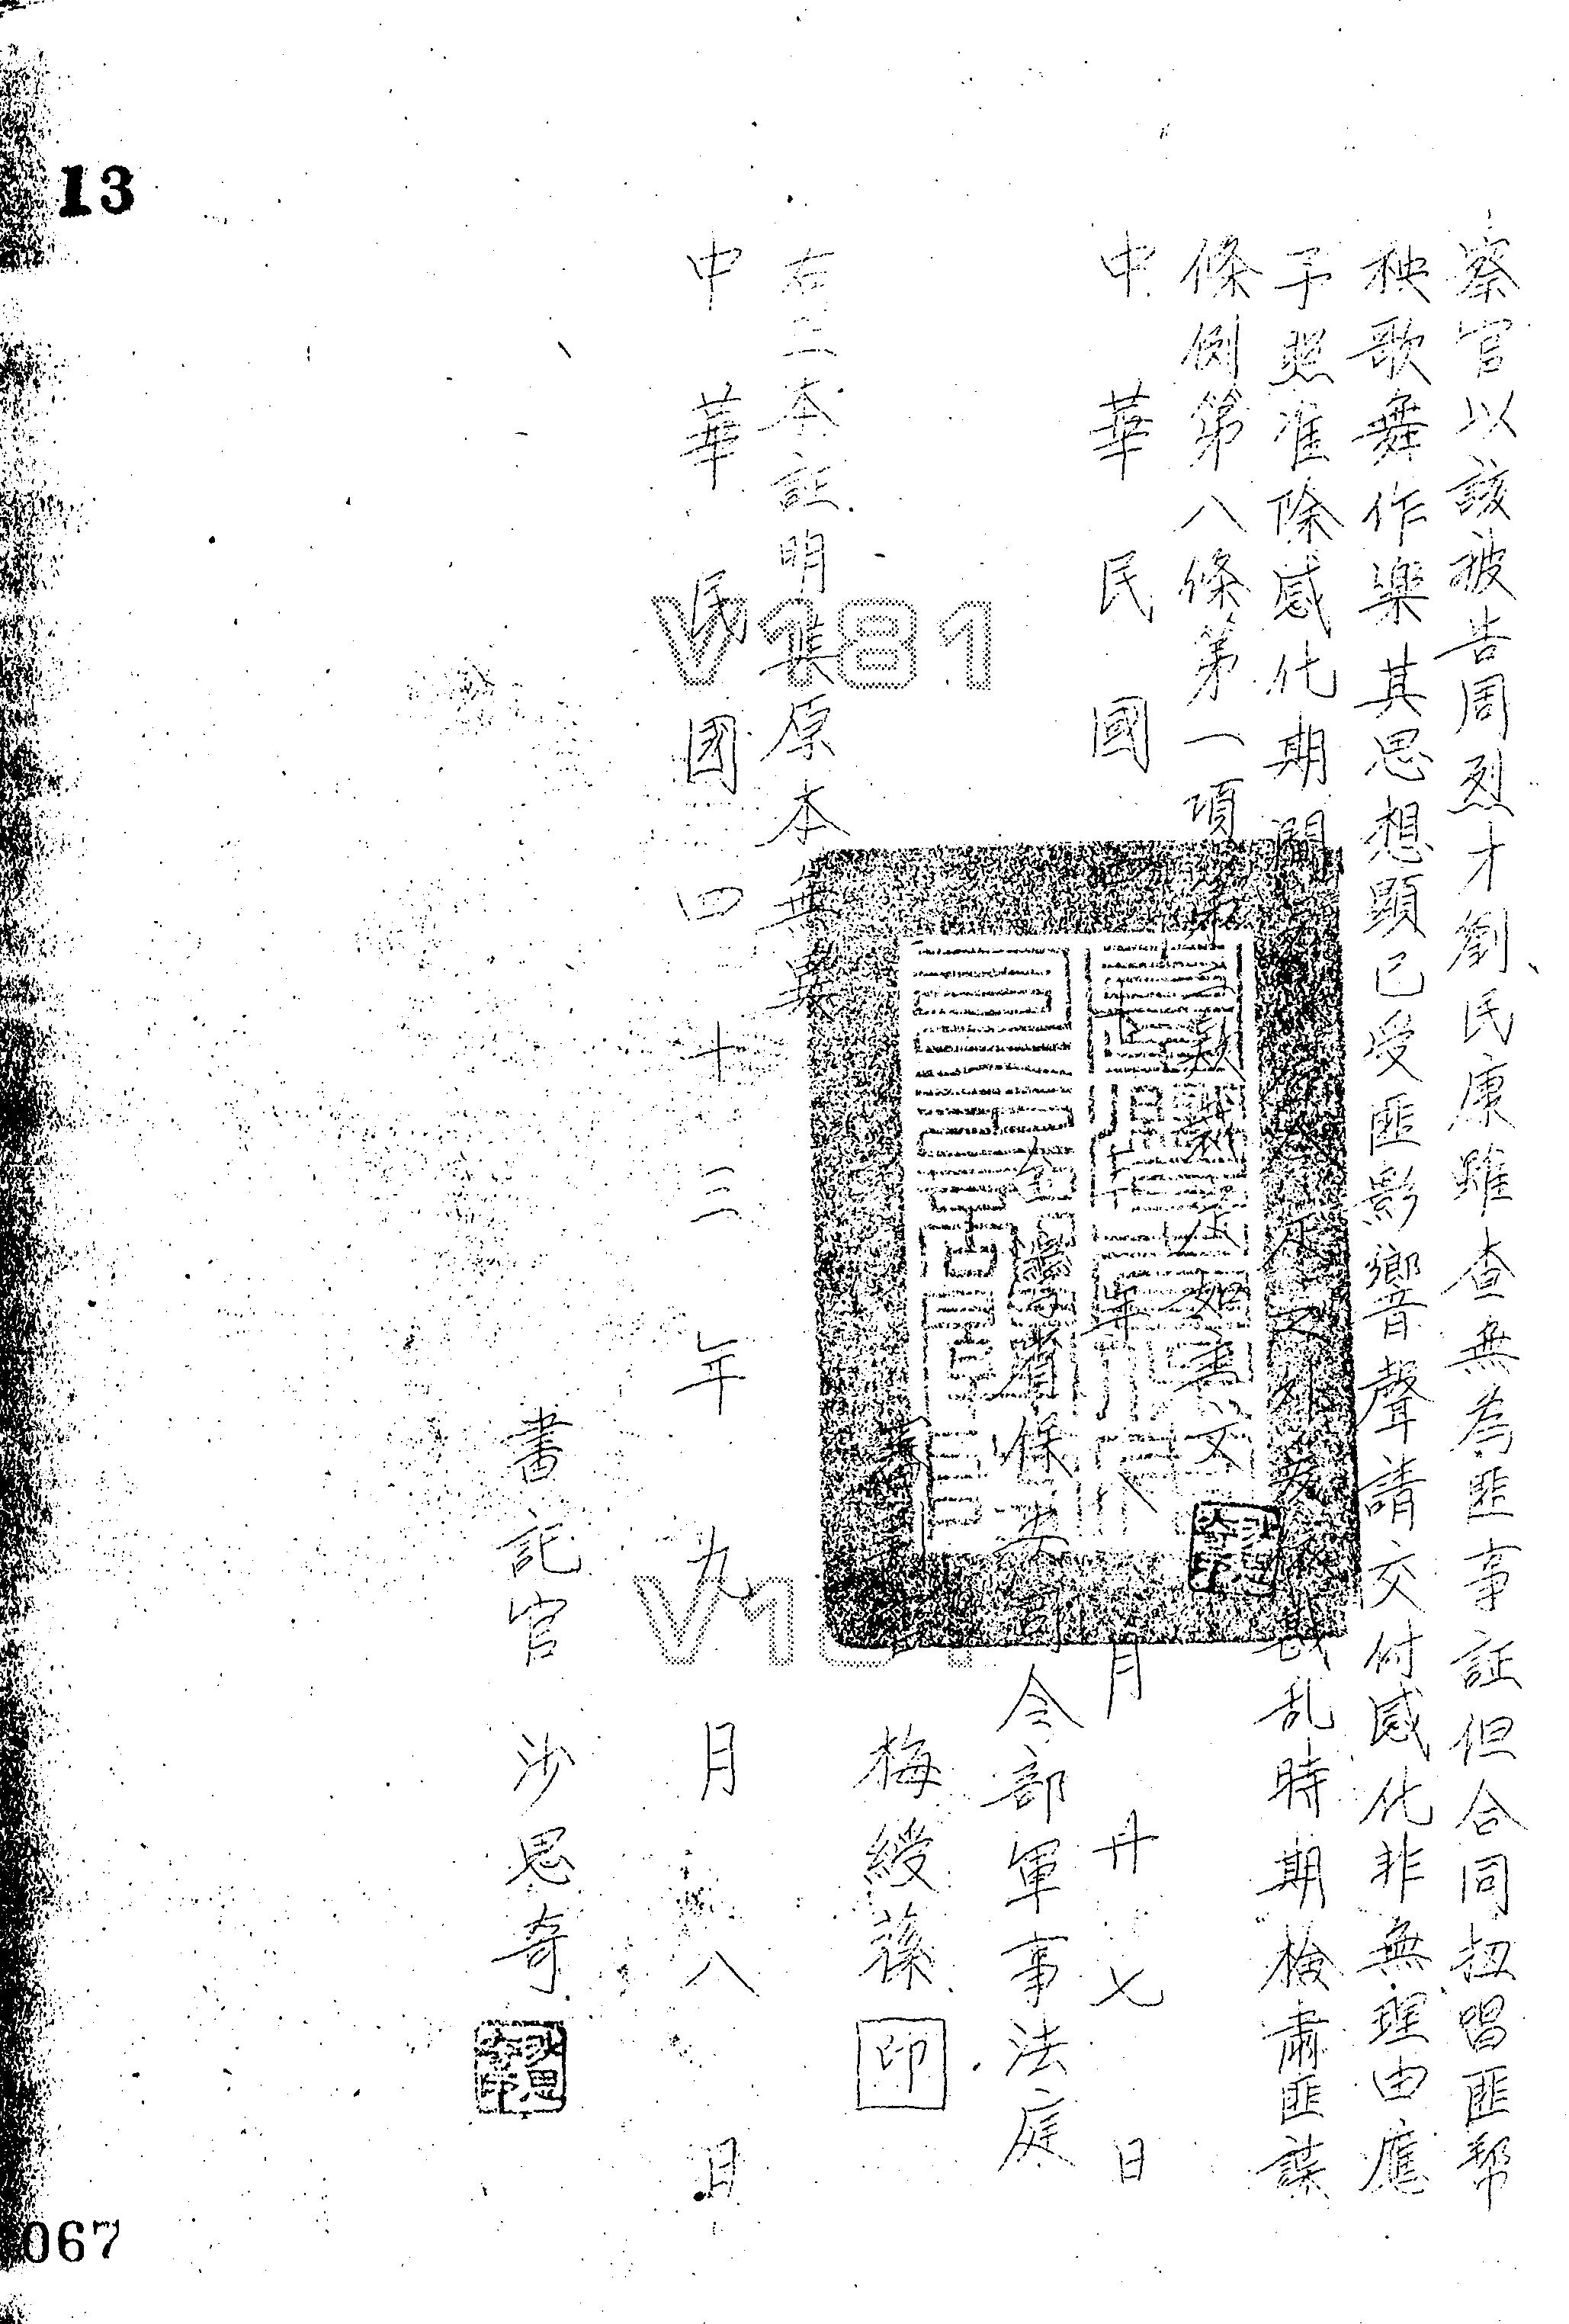 察官以該被告周烈才劉民康雖查無為匪事証但合同扭唱匪幫
秧歌舞作樂其思想顕已受匪影響音聲請交付感化非無理由應
予照准除感化期間之外爰依戡乱時期檢肅匪諜
條例第八條第一項第二款裁定如主文
中華民國年八月廿七日
保安司令部軍事法庭
梅綬蓀 印
右正本証明與原本無異
中華民國四十三年九月八日
書記官 沙思奇
13
067
V181